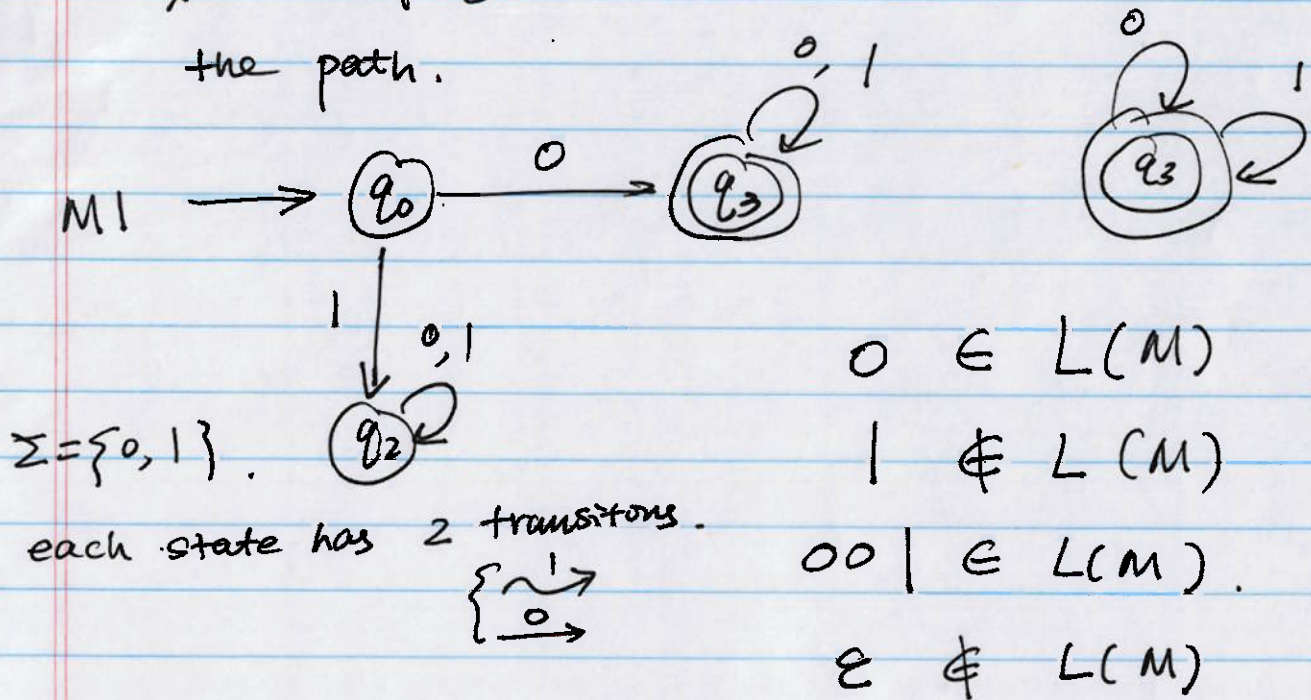 the path.
0, 1
0
1
M1
q0
0
q3
q3
1
0,1
q2
Σ={0,1}.
each state has 2 transitons.
1
0
0 ∈ L(M)
1 ∉ L(M)
001 ∈ L(M).
ε ∉ L(M)